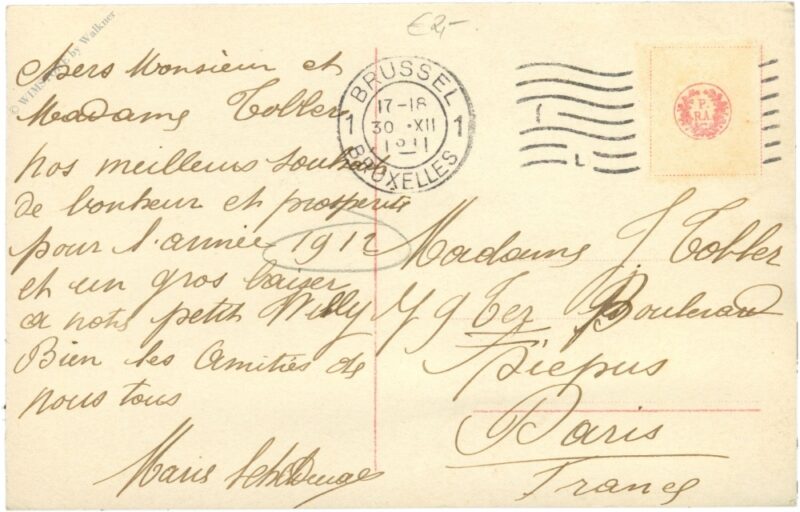 €2,-
© WIMSEDE by Walkner
Chers Monsieur et
Madame Tobler
nos meilleurs souhaits
de bonheur et prosperité
pour l'année 1912
et un gros baiser
a notre petit Willy
Bien les amitiés de
nous tous
Marie
BRUSSEL
17-18
1 30 XII 1
1911
BRUXELLES
L
P.
RA.
Madame J Tobler
79 Ter Boulevard
Picpus
Paris
France